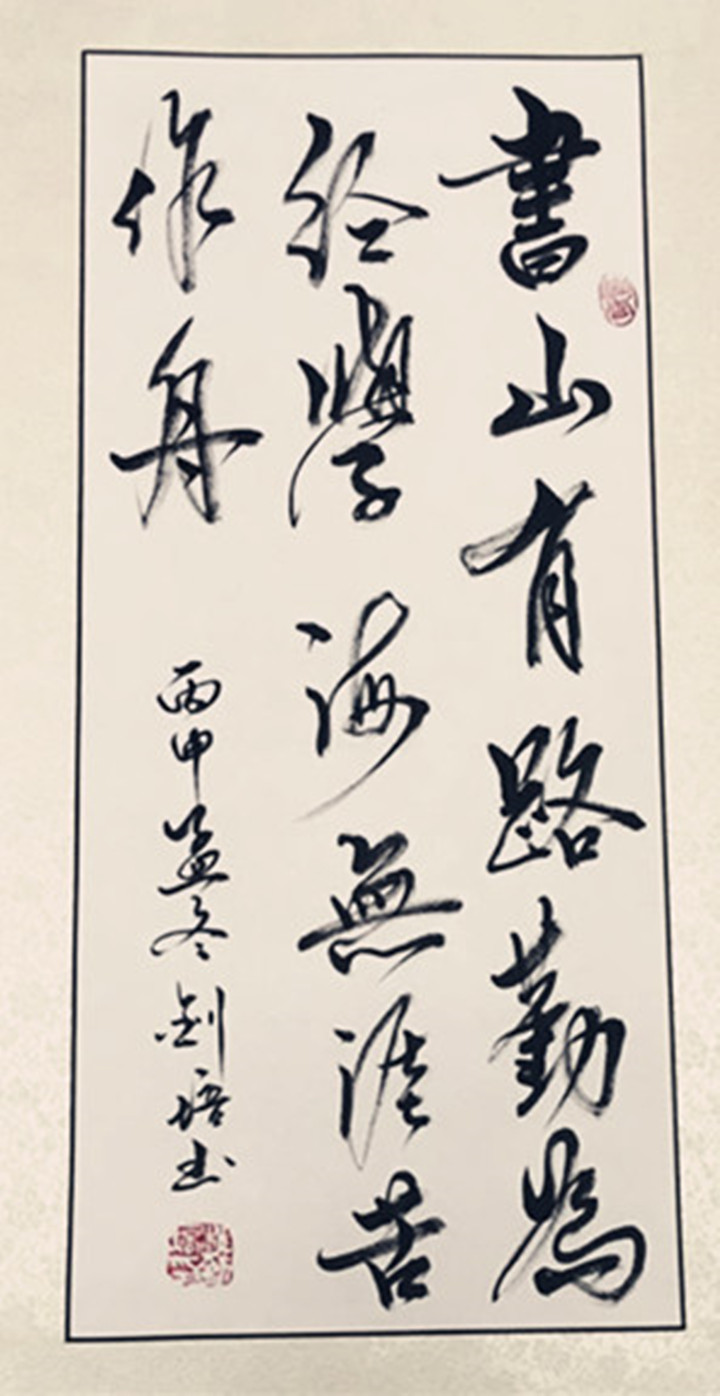 書山有路勤為
徑學海無涯苦
作舟
丙申孟冬劍培书